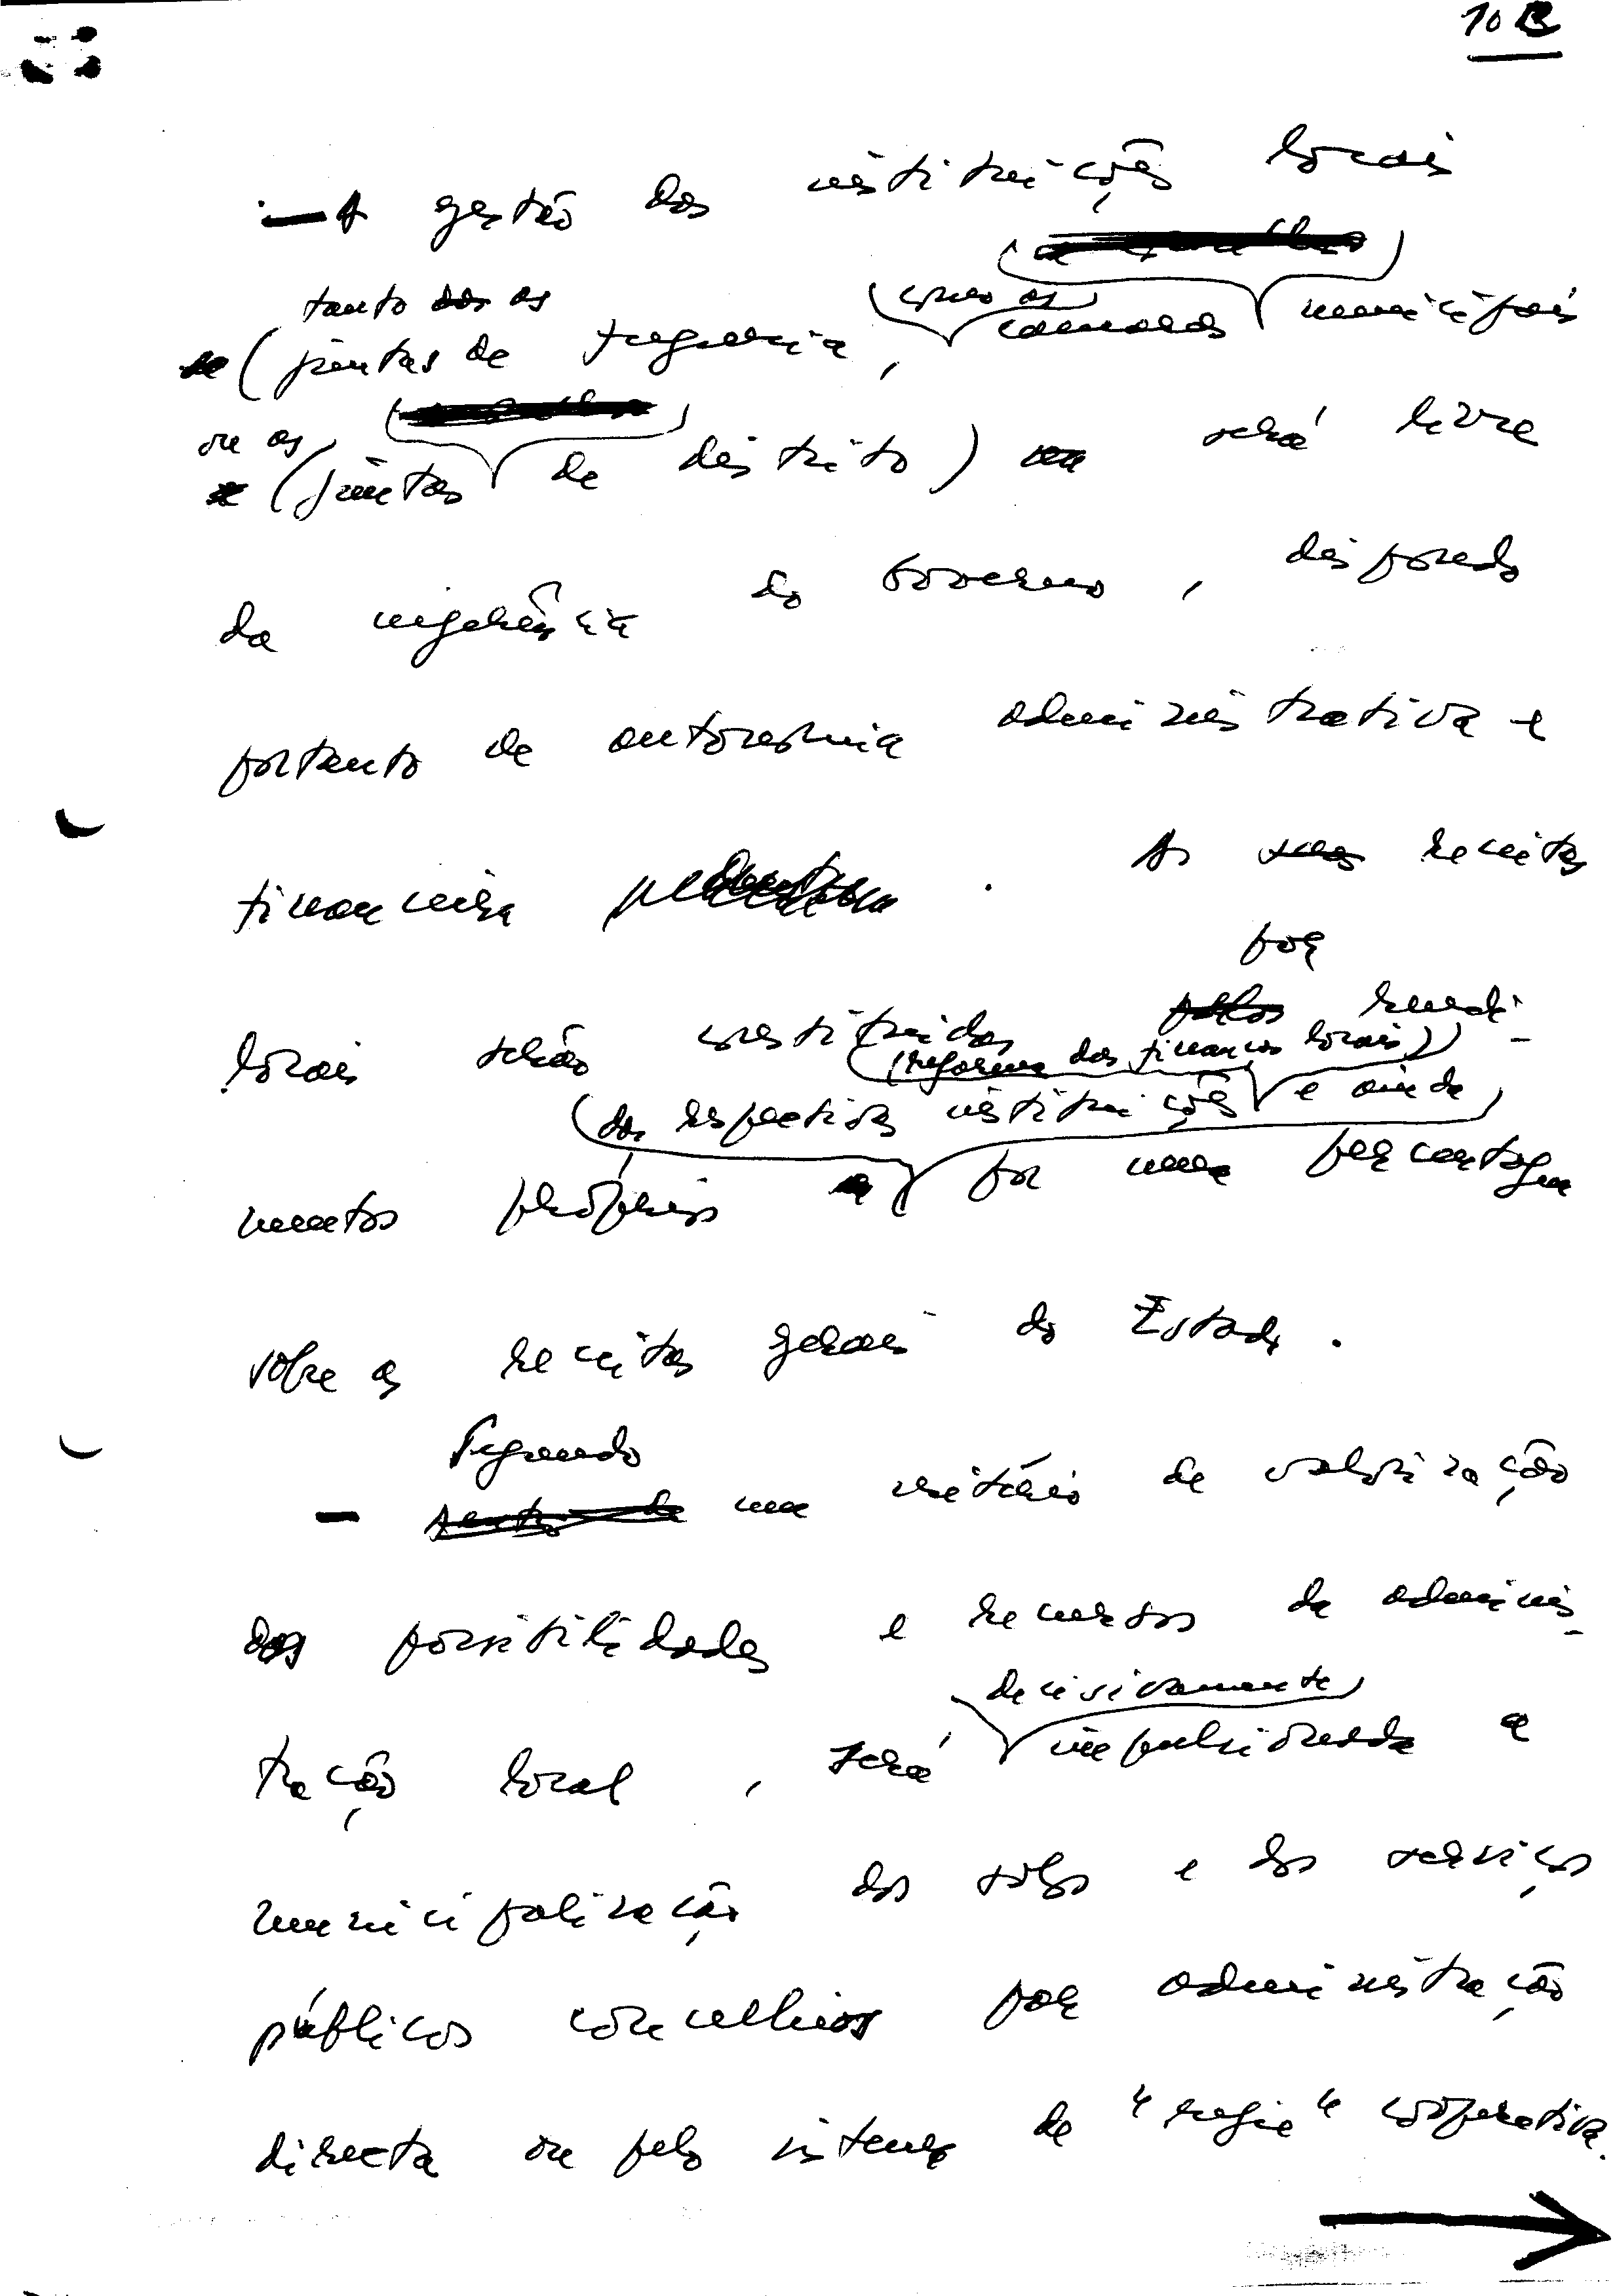 10 B
— A gestão das instituições locais
tanto as como as
(juntas de freguesia, camaras municipais
ou as
(juntas de distrito) será livre
da ingerência do Governo, dispondo
portanto de autonomia administrativa e
financeira. As receitas
por
locais serão constituidas rendi-
(reforma das finanças locais)
das respectivas instituições e ainda
mentos próprios por uma percentagem
sobre as receitas gerais do Estado.
Segundo
— um critério de valorização
das possibilidades e recursos da adminis-
decisivamente
tração local, será impulsionada a
municipalização dos solos e dos serviços
públicos concelhios por administração
directa ou pelo sistema de "regie" cooperativa.